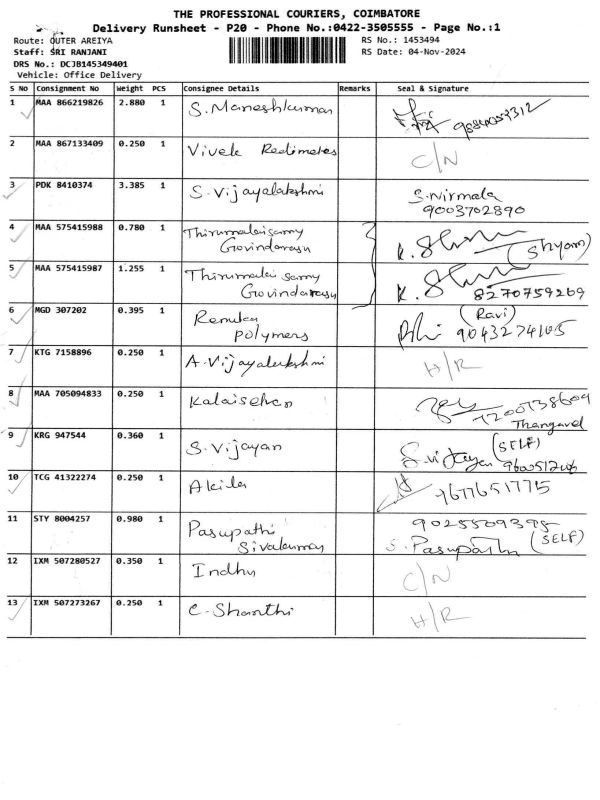 THE PROFESSIONAL COURIERS, COIMBATORE
Delivery Runsheet - P20 - Phone No.:0422-3505555 - Page No.:1
Route: OUTER AREIYA RS No.: 1453494
Staff: SRI RANJANI RS Date: 04-Nov-2024
DRS No.: DCJB145349401
Vehicle: Office Delivery
S No Consignment No Weight PCS Consignee Details Remarks Seal & Signature
1 MAA 866219826 2.880 1 S.Maneshkumar
2 MAA 867133409 0.250 1 Vivek Redimates C/N
3 PDK 8410374 3.385 1 S.Vijayalakshmi S.Nirmala
9003702890
4 MAA 575415988 0.780 1 Thirumalaisamy
Govindarasu (Shyam)
5 MAA 575415987 1.255 1 Thirumalaisamy
Govindarasu 8270759269
6 MGD 307202 0.395 1 Renuka (Ravi)
Polymers 9043274105
7 KTG 7158896 0.250 1 A.Vijayalukshmi H/R
8 MAA 705094833 0.250 1 Kalaiselvan
Thangavel
9 KRG 947544 0.360 1 S.Vijayan (SELF)
10 TCG 41322274 0.250 1 Akila
11 STY 8004257 0.980 1 Pasupathi
Sivakumar S.Pasupathi (SELF)
12 IXM 507280527 0.350 1 Indhu C/N
13 IXM 507273267 0.250 1 C.Shanthi H/R